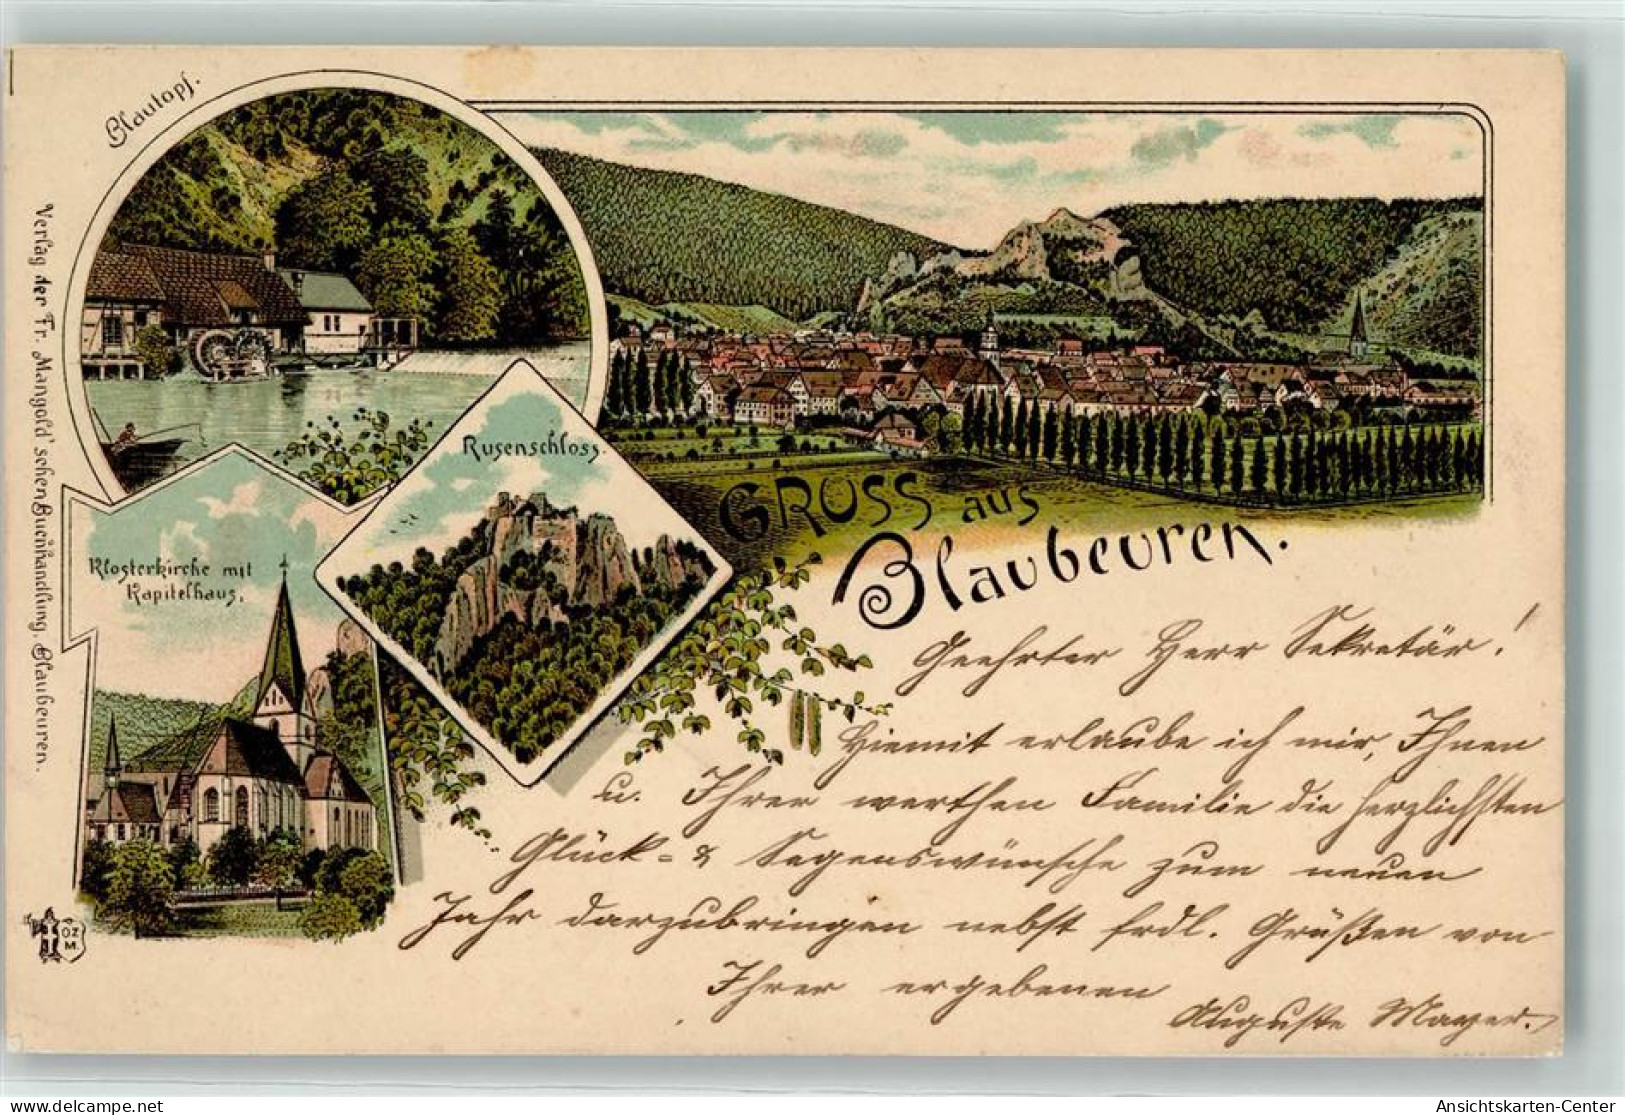 Blautopf.
Verlag der Fr. Mangold'schen Buchhandlung, Blaubeuren.
Rusenschloss.
Klosterkirche mit
Kapitelhaus.
GRUSS aus
Blaubeuren.
Geehrter Herr Sekretär!
Hiemit erlaube ich mir, Ihnen
u. Ihrer werthen Familie die herzlichsten
Glück- & Segenswünsche zum neuen
Jahr darzubringen nebst frdl. Grüßen von
Ihrer ergebenen
Auguste Mayer.
OZ
M.
delcampe.net
Ansichtskarten-Center